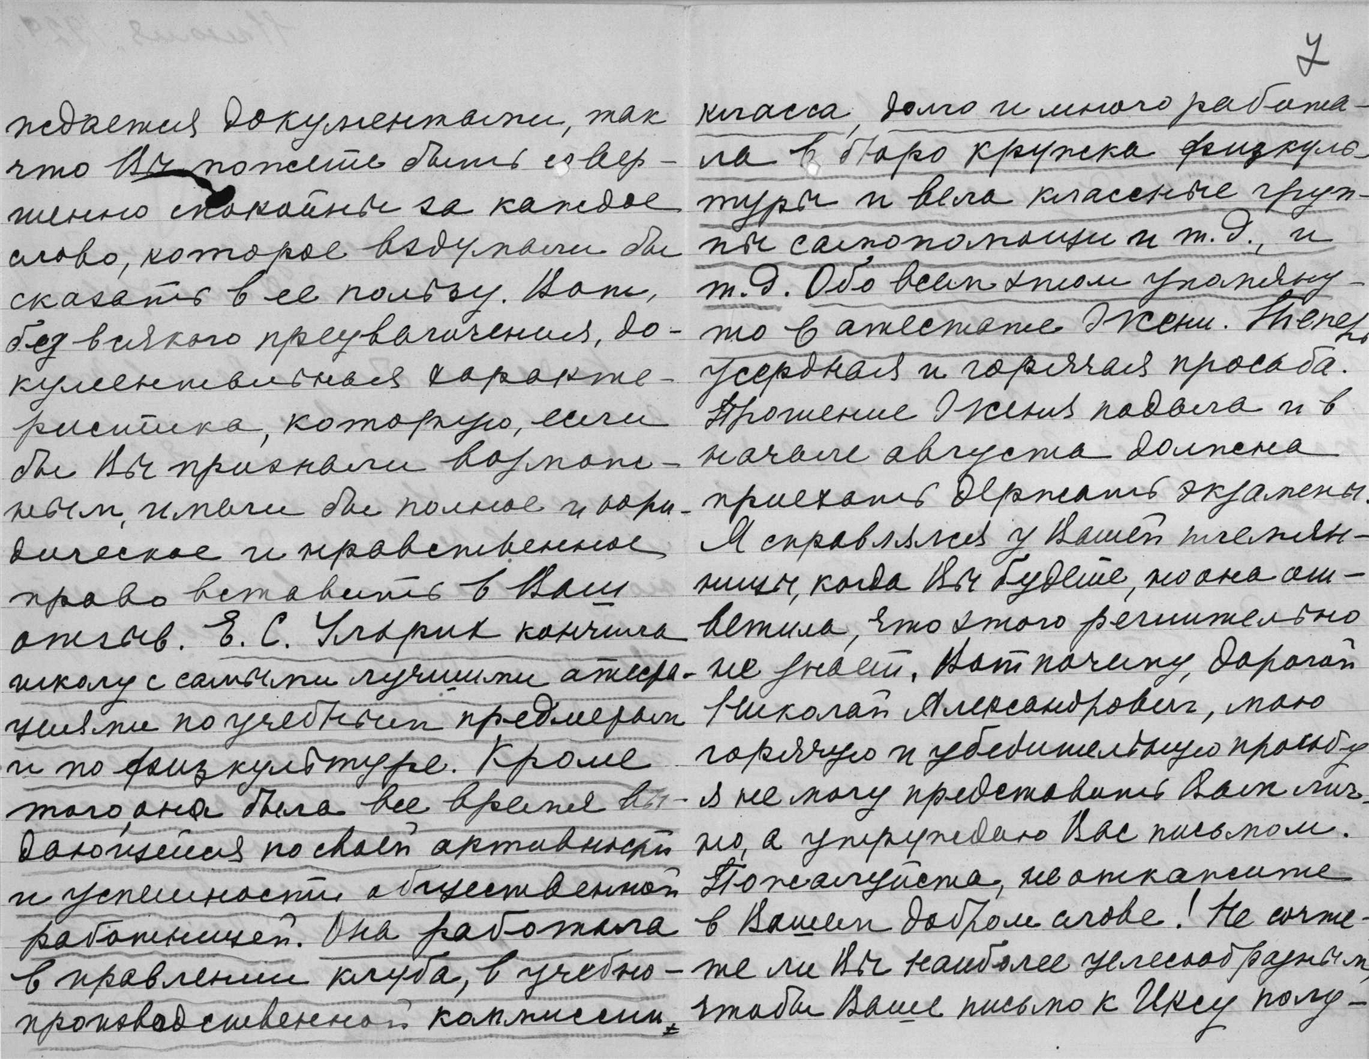 ждается документами, так
что Вы можете быть совер-
шенно спокойны за каждое
слово, которое вздумали бы
сказать в ее пользу. Вот,
без всякого преувеличения, до-
кументальная характе-
ристика, которую, если
бы Вы признали возмож-
ным, имели бы полное и юри-
дическое и нравственное
право вставить в Ваш
отзыв. Е. С. Ульрих кончила
школу с самыми лучшими аттеста-
циями по учебным предметам
и по физкультуре. Кроме
того, она была все время вы-
дающейся по своей активности
и успешности общественной
работницей. Она работала
в правлении клуба, в учебно-
производственной коммиссии
7
класса, долго и много работа-
ла в бюро кружка физкуль-
туры и вела классные груп-
пы самопомощи и т.д., и
т.д. Обо всем этом упомяну-
то в атестате Жени. Теперь
усердная и горячая просьба.
Прошение Женя подала и в
начале августа должна
приехать держать экзамены
Я справлялся у Вашей племян-
ницы, когда Вы будете, но она от-
ветила, что этого решительно
не знает. Вот почему, дорогой
Николай Александрович, мою
горячую и убедительную просьбу
я не могу представить Вам лич-
но, а утруждаю Вас письмом.
Пожалуйста, не откажите
в Вашем добром слове! Не сочте-
те ли Вы наиболее целесообразным,
чтобы Ваше письмо к Иксу полу-